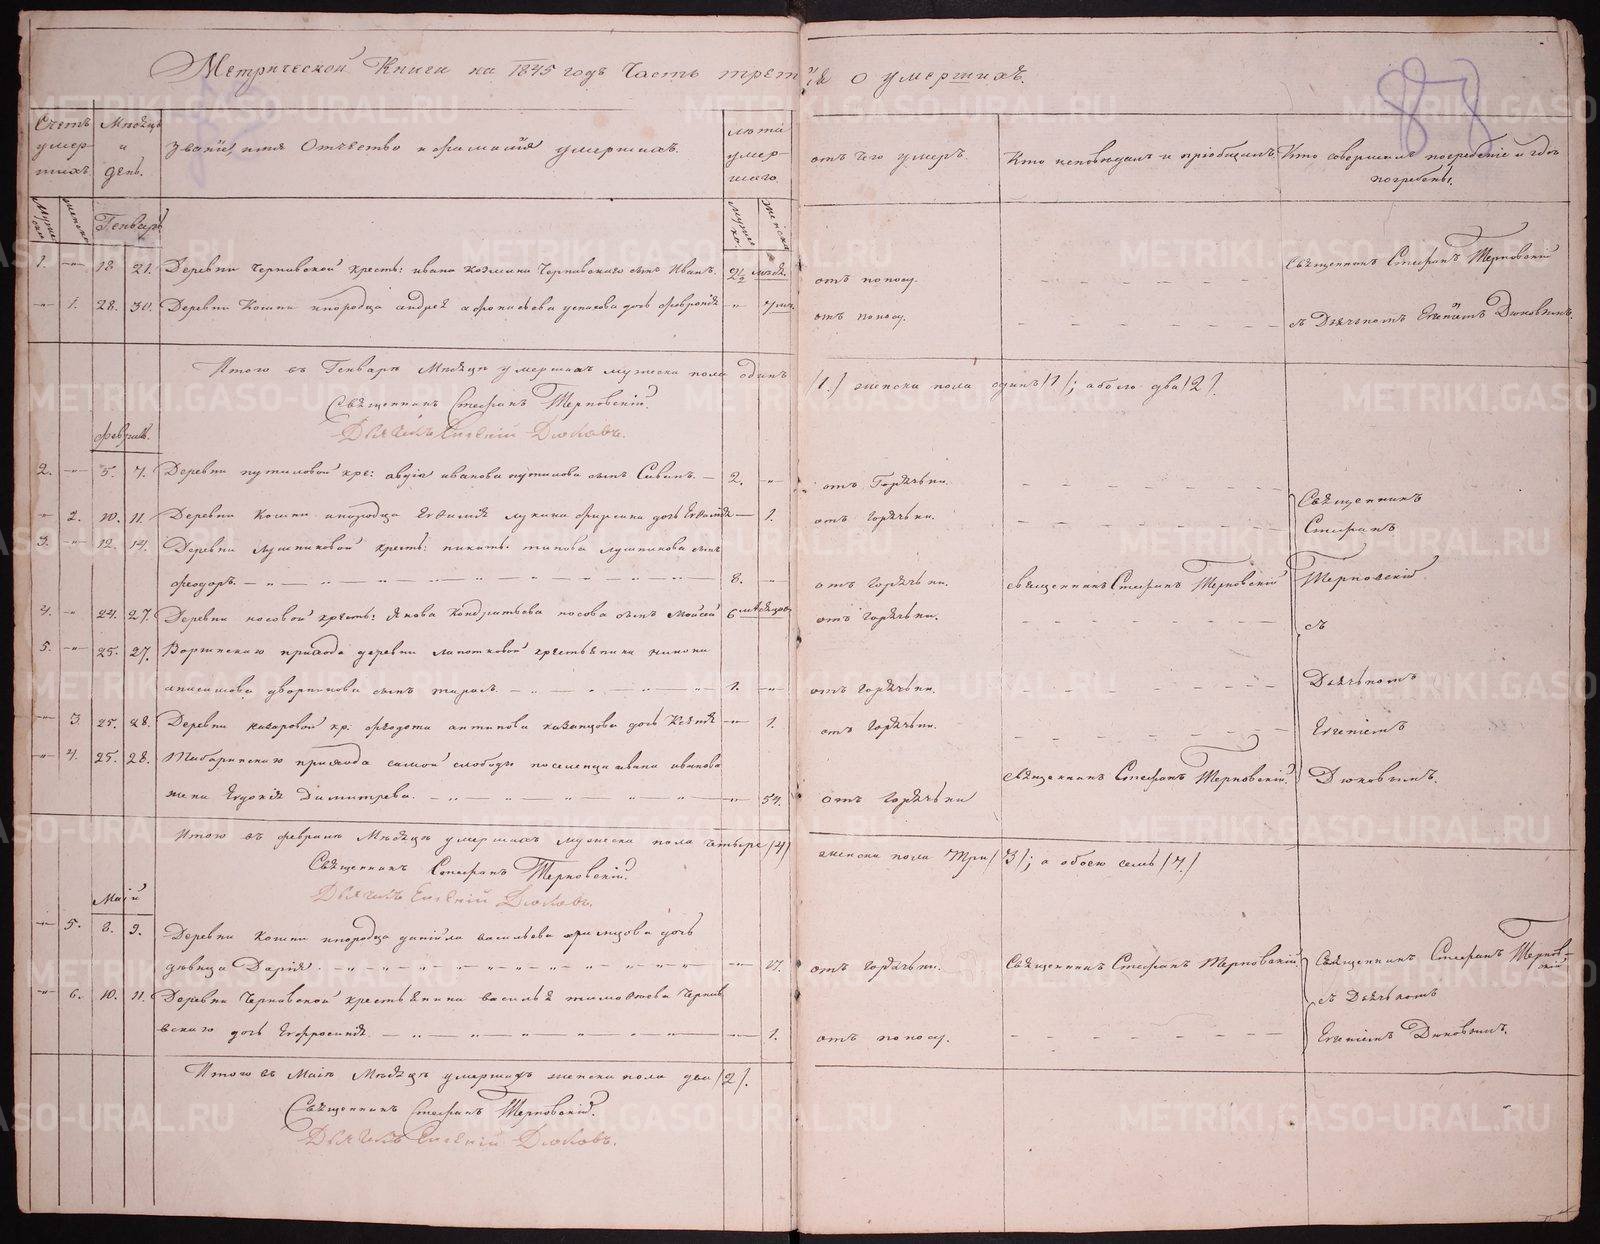 Метрической Книги на 1845 годъ Часть третїя о умершихъ.
87
Счетъ умер-шихъ
Мѣсяцъ и день.
Званїе, имя Отчество и фамилїя умершихъ.
лѣта умер-шаго.
отъ чего умеръ.
Кто исповѣдалъ и прїобщалъ.
Кто совершалъ погребенїе и гдѣ погребены.
Генварь
1. 18 21. Деревни Черновской крестьː ивана козмина Черновскаго сынъ Иванъ. 2½ мѣся.
отъ поносу.
Священникъ Стефанъ Терновскїй
1. 28. 30. Деревни Кошни инородца андрея афонасьева усанова дочь февронїя 7 мѣ.
отъ поносу.
съ Дьячкомъ Евгенїемъ Дюковымъ.
Итого въ Генварѣ Мѣсяцѣ умершихъ мужеска пола одинъ /1./ женска пола одинъ /1/; а обоего два /2/.
Священникъ Стефанъ Терновскїй.
Дьячикъ Евгенїй Дюковъ.
февраль.
2. 5. 7. Деревни путиловой креː ивана путилова сынъ Савинъ. 2.
отъ Горячки.
Священникъ
2. 10. 11. Деревни Кошни инородца Евдоким лукина дочь Евдокїя 1.
отъ горячки.
Стефанъ
3. 12. 14. Деревни лушниковой крестьː никиты титова лушникова сынъ
феодоръ. 8.
отъ горячки.
священникъ Стефанъ Терновскїй
Терновскїй
4. 24. 27. Деревни носовой крестьː Якова Кондратьева носова сынъ Моисей 6 мѣсяцовъ
отъ горячки.
съ
5. 25. 27. Деревни лапотковой крестьянина
дворникова сынъ тарасъ. 1.
отъ горячки.
Дьячкомъ
3. 25. 28. Деревни назаровой крː федота антипова казанцова дочь Ксенїя 1.
отъ горячки.
Евгенїемъ
4. 25. 28. Табаринскаго прихода самой слободы поселенца ивана иванова
жена Евдокїя Димитрева. 54.
отъ горячки
священникъ Стефанъ Терновскїй.
Дюковымъ.
Итого въ февралѣ Мѣсяцѣ умершихъ мужеска пола четыре /4/ женска пола три /3/; а обоего семь /7./
Священникъ Стефанъ Терновскїй.
Дьячикъ Евгенїй Дюковъ.
Маїй
5. 8. 9. Деревни Кошни инородца данїила васильева дочь
дѣвица Дарїя. 17.
отъ горячки.
Священникъ Стефанъ Терновскїй
Священникъ Стефанъ Терновскїй
съ Дьячкомъ
6. 10. 11. Деревни Черновской крестьянина василья тимофѣева Чернов
скаго дочь Ефросинїя 1.
отъ поносу.
Евгенїемъ Дюковымъ.
Итого въ Маїѣ Мѣсяцѣ умершихъ женска пола два /2/.
Священникъ Стефанъ Терновскїй.
Дьячикъ Евгенїй Дюковъ.
METRIKI.GASO-URAL.RU